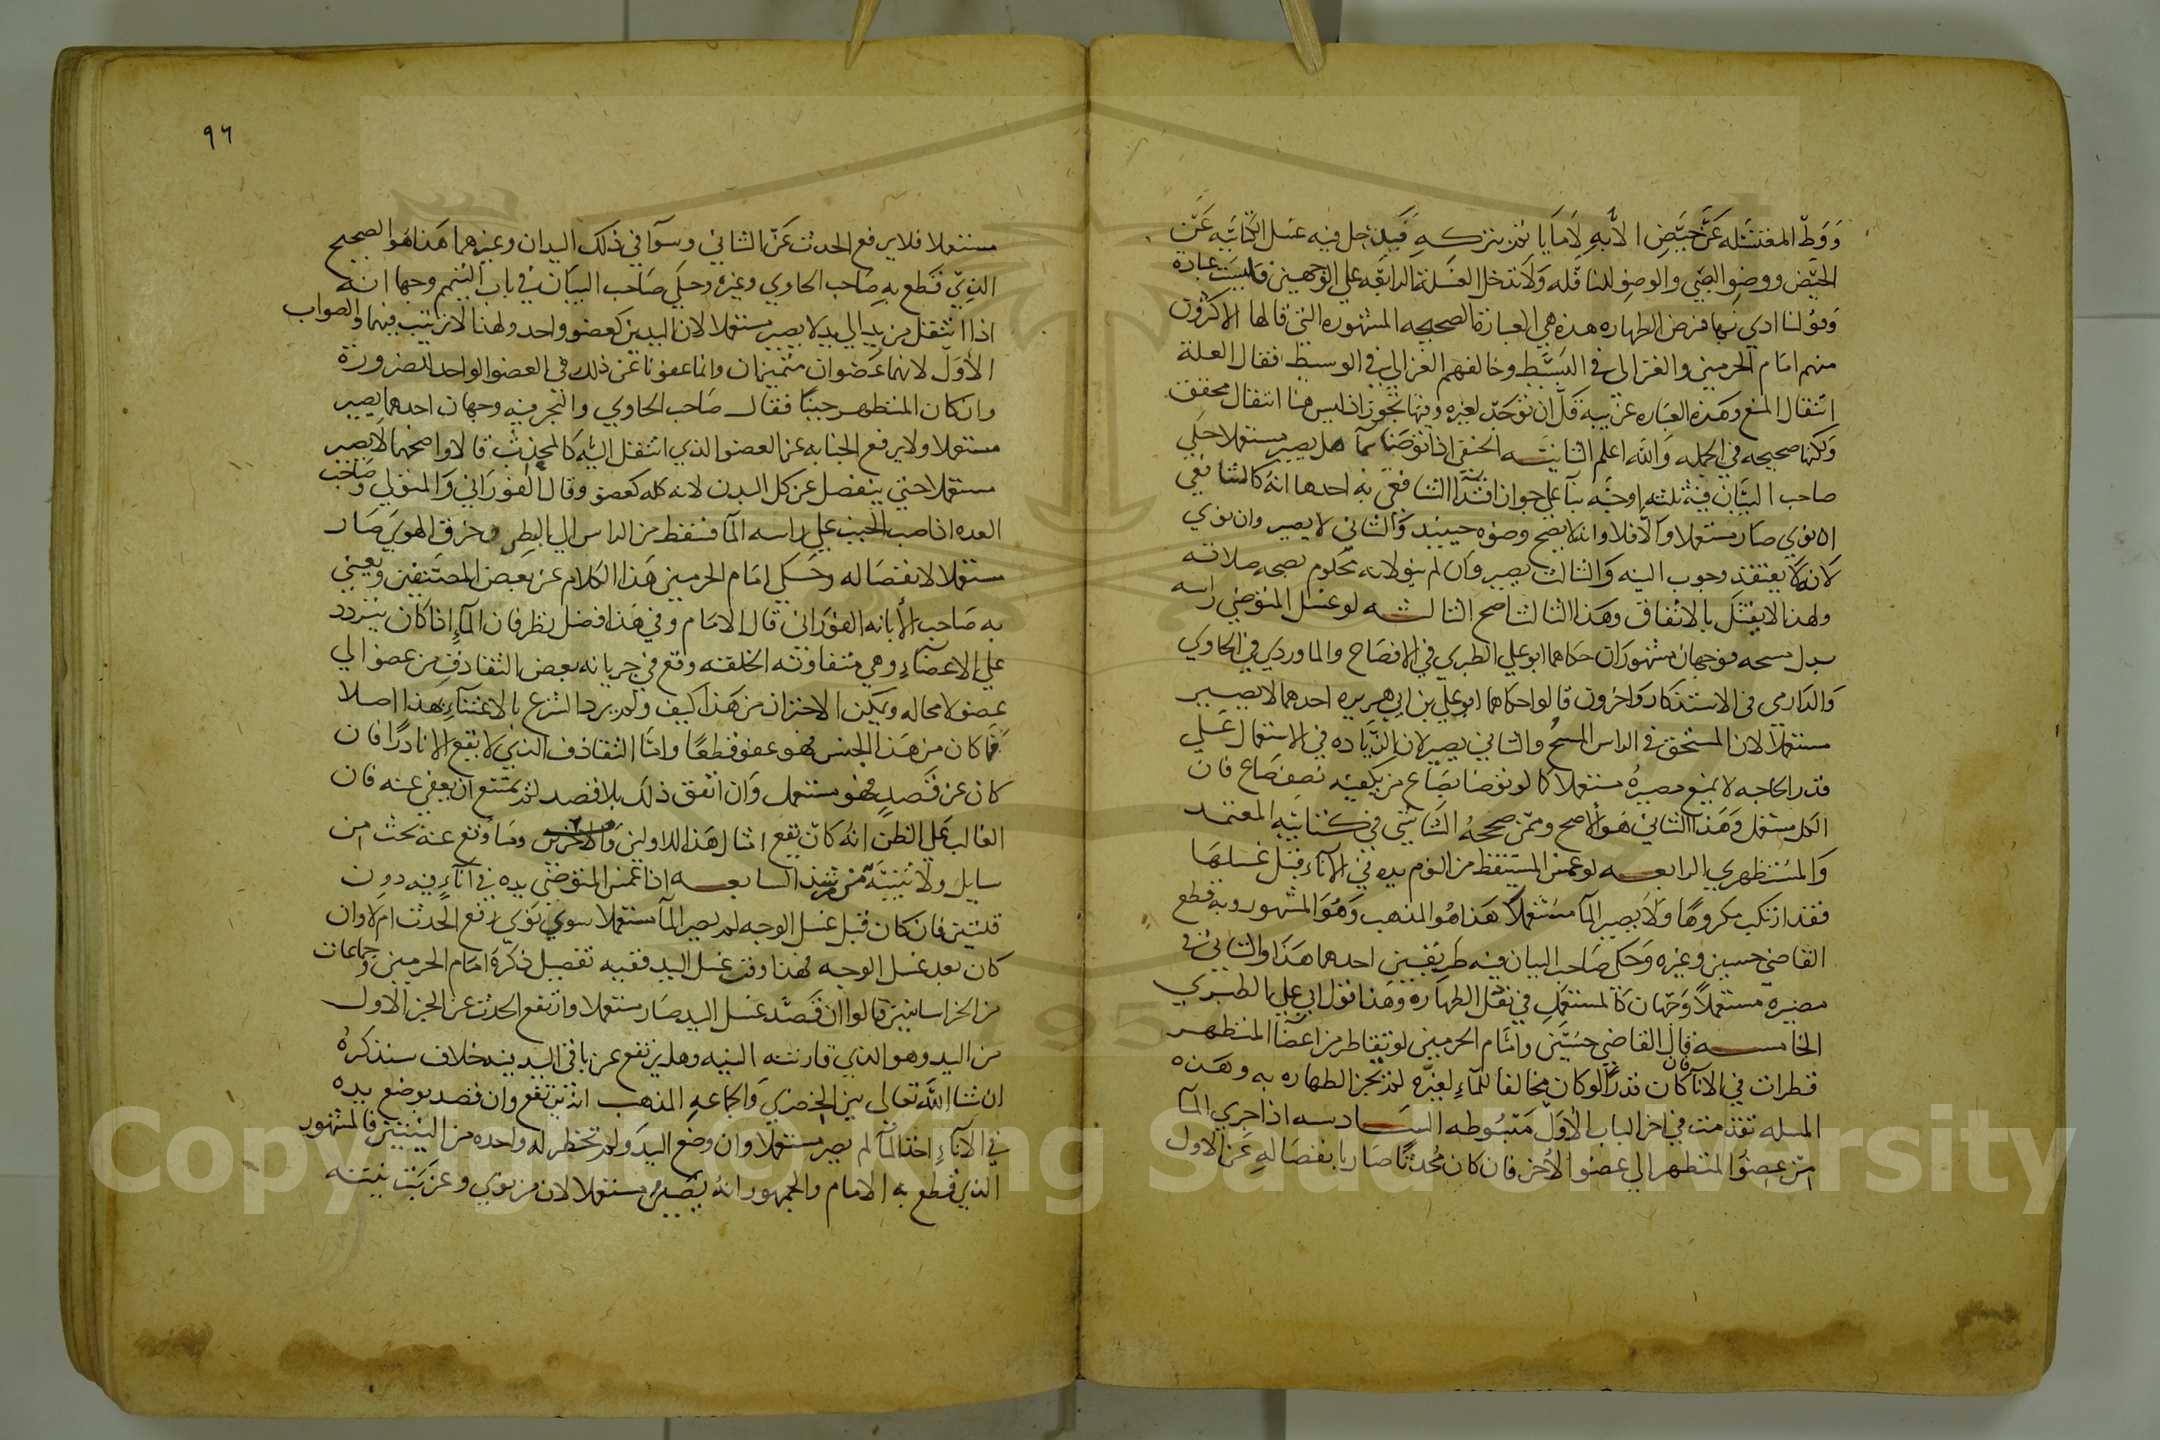 ووطئ المغتسله عن حيض الا به لا ما ياثم بتركه فيدخل فيه غسل الكتابيه عن
الحيض ووضوا الصبي والوضو للنافله ولا تدخل الغسلة الرابعه علي الوجهين فليست عبادة
وقولنا ادي بها فرض الطهاره هذه هي العبارة الصحيحه المشهوره التي قالها الاكثرون
منهم امام الحرمين والغزالي في البسيط وخالفهم الغزالي في الوسيط فقال العلة
انتقال المنع وهذه العباره غريبه قل ان توجد لغيره وفيها تجوز اذ ليس هنا انتقال محقق
ولكنها صحيحه في الجمله والله اعلم الثانيه الحنفي اذا توضا بما هل يصير مستعملا حكي
صاحب البيان فيه ثلثه اوجه بنا علي جواز اقتدا الشافعي به احدها انه كالشافعي
ان نوي صار مستعملا والا فلا وانه لا يصح وضوه حينيد والثاني لا يصير وان نوي
لانه لا يعتقد وجوب النيه والثالث يصير وان لم ينو لانه محكوم بصحه صلاته
ولهذا لا يقتل بالاتفاق وهذا الثالث اصح الثالثه لو غسل المتوضي راسه
بدل مسحه فوجهان مشهوران حكاهما ابو علي الطبري في الافصاح والماوردي في الحاوي
والدارمي في الاستذكار واخرون قالوا حكاهما ابو علي بن ابي هريره احدهما لا يصير
مستعملا لان المستحق في الراس المسح والثاني يصير لان الزياده في الاستعمال علي
قدر الحاجه لا يمنع مصيره مستعملا كما لو توضا بصاع من يكفيه نصف صاع فان
الكل مستعمل وهذا الثاني هو الاصح وممن صححه الشاشي في كتابيه المعتمد
والمستظهري الرابعه لو غمس المستيقظ من النوم يده في الاناء قبل غسلها
فقد ارتكب مكروها ولا يصير الما مستعملا هذا هو المذهب وهو المشهور وبه قطع
القاضي حسين وغيره وحكي صاحب البيان فيه طريقين احدهما هذا والثاني في
مصيره مستعملا وجهان كالمستعمل في نفل الطهاره وهذا قول ابي علي الطبري
الخامسه قال القاضي حسين وامام الحرمين لو تقاطر من اعضا المتطهر
قطرات في الانا فان كان قدرا لو كان مخالفا للماء لغيره لم يجز الطهاره به وهذه
المسله تقدمت في اخر الباب الاول مبسوطه السادسه اذا جري الما
من عضو المتطهر الي عضو الاخر فان كان محدثا صار بانفصاله عن الاول
٩٦
مستعملا فلا يرفع الحدث عن الثاني وسوآ في ذلك اليدان وغيرهما هذا هو الصحيح
الذي قطع به صاحب الحاوي وغيره وحكي صاحب البيان في باب التيمم وجها انه
اذا انتقل من يد الي يد لا يصير مستعملا لان اليدين كعضو واحد ولهذا لا ترتيب فيهما والصواب
الاول لانهما عضوان متميزان وانما عفونا عن ذلك في العضو الواحد للضرورة
وان كان المتطهر جنبا فقال صاحب الحاوي والبحر فيه وجهان احدهما يصير
مستعملا ولا يرفع الجنابه عن العضو الذي انتقل اليه كالمحدث قالا واصحهما لا يصير
مستعملا حتي ينفصل عن كل البدن لانه كله كعضو وقال الفوراني والمتولي وصاحب
العده اذا صب الجنب علي راسه الما فسقط من الراس الي البطن وخرق الهوي صار
مستعملا لانفصاله وحكي امام الحرمين هذا الكلام عن بعض المصنفين ويعني
به صاحب الابانه الفوراني قال الامام وفي هذا فضل نظر فان الماء اذا كان يتردد
علي الاعضاء وهي متفاوته الخلقه وقع في جريانه بعض التقاذف من عضو الي
عضو لا محاله ويمكن الاحتراز من هذا كيف ولم يرد الشرع بالاعتناء بهذا اصلا
فما كان من هذا الجنس فهو عفو قطعا واما التقاذف الذي لا يقع الا نادرا فان
كان عن قصد فهو مستعمل وان اتفق ذلك بلا قصد لم يمتنع ان يعفي عنه فان
الغالب علي الظن انه كان يقع امثال هذا للاولين وما وقع عنه بحث من
سايل ولا تنبيه من مرشد السابعه اذا غمس المتوضي يده في اناء فيه دون
قلتين فان كان قبل غسل الوجه لم يصر الما مستعملا سوي نوي رفع الحدث ام لا وان
كان بعد غسل الوجه فهذا وقت غسل اليد ففيه تفصيل ذكره امام الحرمين وجماعات
من الخراسانيين قالوا ان قصد غسل اليد صار مستعملا وارتفع الحدث عن الجز الاول
من اليد وهو الذي قارنته النيه وهل يرتفع عن باقي اليد فيه خلاف سنذكره
ان شا الله تعالى بين الخضري والجماعه المذهب انه يرتفع وان قصد بوضع يده
في الاناء اخذ الما لم يصر مستعملا وان وضع اليد ولم تخطر له واحده من النيتين فالمشهور
الذي قطع به الامام والجمهور انه يصير مستعملا لان من نوي وعزبت نيته
Copyright © King Saud University